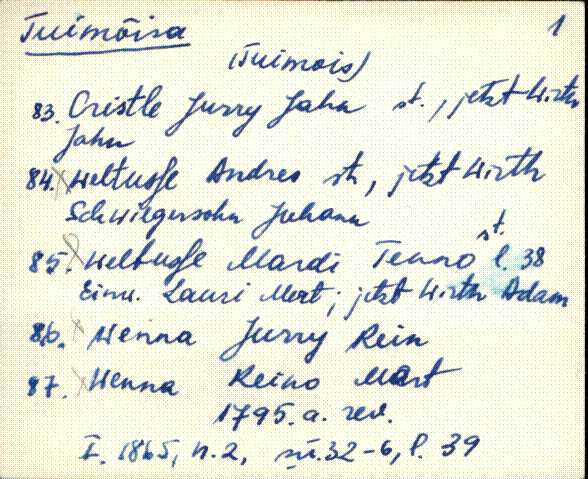 Tuimõisa 1
(Tuimois)
83. Cristle Jurry Jahn st., jetzt Wirth
Jahn
84. Weltusse Andres st, jetzt Wirth
Schwiegersohn Juhann
85. Weltusse Mardi Tenno st. l. 38
Einw. Lauri Mert; jetzt Wirth Adam
86. Wenna Jurry Rein
87. Wenna Reino Mart
1795. a. rev.
I. 1865, n. 2, sü. 32-6, l. 39